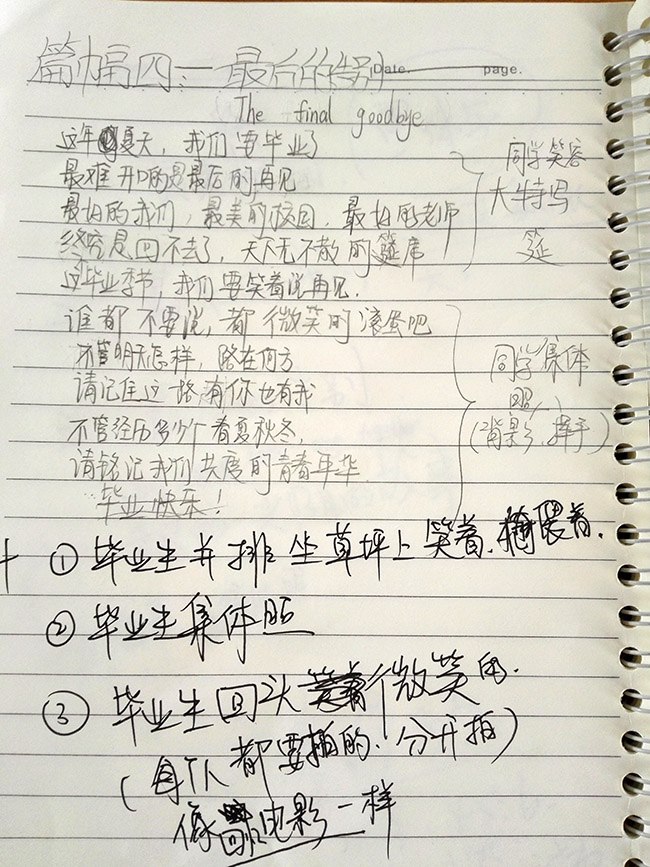 篇幅四：最后的告别
Date. page.
The final goodbye
这年夏天，我们要毕业了
最难开口的是最后的再见
最好的我们，最美的校园，最好的老师
终究是回不去了，天下无不散的筵席
这毕业季节，我们要笑着说再见.
谁都不要说，都微笑的滚蛋吧
不管明天怎样，路在何方
请记住这一路有你也有我
不管经历多少个春夏秋冬,
请铭记我们共度的青春年华
毕业快乐！
同学笑容
大特写
筵
同学集体
照
(背影、挥手)
① 毕业生并排坐草坪上笑着、拥偎着.
② 毕业生集体照
③ 毕业生回头微笑的.
(每个人都要拍的、分开拍)
像电影一样